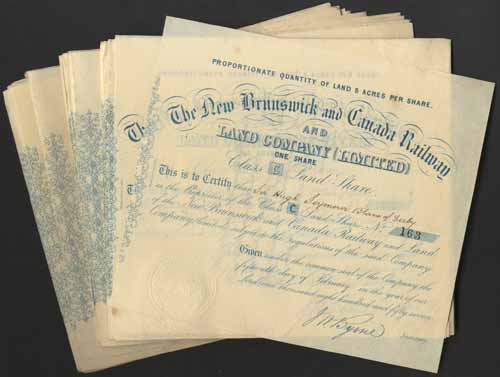 PROPORTIONATE QUANTITY OF LAND 5 ACRES PER SHARE.
The New Brunswick and Canada Railway
AND
LAND COMPANY (LIMITED)
ONE SHARE
Class C Land Share
This is to Certify that Sir Hugh Seymour
is the Proprietor of the Class C Land Share No 163
of the New Brunswick and Canada Railway and Land
Company, limited, subject to the regulations of the said Company
Given under the common seal of the Company, the
fifteenth day of February in the year of our
Lord one thousand eight hundred and fifty seven
J W Byrne